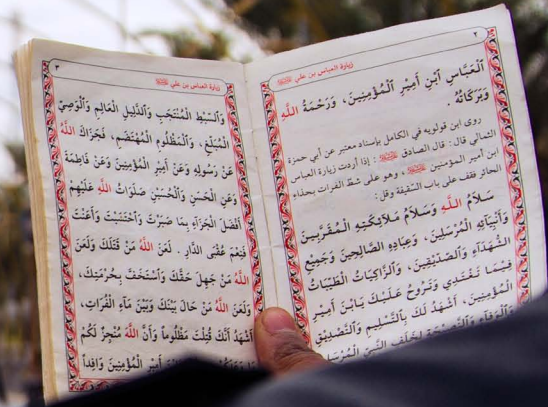 ٢
زيارة العباس بن علي
ٱلْعَبَّاسِ ٱبْنِ أَمِيْرِ ٱلْمُؤْمِنِينَ، وَرَحْمَةُ ٱللَّهِ
وَبَرَكَاتُهُ .
روى ابن قولويه في الكامل بإسناد معتبر عن أبي حمزة
الثمالي قال : قال الصادق : إذا أردت زيارة العباس
ابن أمير المؤمنين ، وهو على شط الفرات بحذاء
الحائر فقف على باب السقيفة وقل :
سَلَامُ ٱللَّهِ وَسَلَامُ مَلَائِكَتِهِ ٱلْمُقَرَّبِينَ
وَأَنْبِيَائِهِ ٱلْمُرْسَلِينَ، وَعِبَادِهِ ٱلصَّالِحِينَ وَجَمِيْعِ
ٱلشُّهَدَآءِ وَٱلصِّدِّيْقِينَ، وَٱلزَّاكِيَاتُ ٱلطَّيِّبَاتُ
فِيْمَا تَغْتَدِي وَتَرُوحُ عَلَيْكَ يَابْنَ أَمِيرِ
ٱلْمُؤْمِنِينَ، أَشْهَدُ لَكَ بِٱلتَّسْلِيمِ وَٱلتَّصْدِيْقِ
وَٱلْوَفَآءِ وَٱلنَّصِيْحَةِ لِخَلَفِ ٱلنَّبِيِّ ٱلْمُرْسَلِ
٣
زيارة العباس بن علي
وَٱلسِّبْطِ ٱلْمُنْتَجَبِ وَٱلدَّلِيلِ ٱلْعَالِمِ وَٱلْوَصِيِّ
ٱلْمُبَلِّغِ، وَٱلْمَظْلُومِ ٱلْمُهْتَضَمِ، فَجَزَاكَ ٱللَّهُ
عَنْ رَسُولِهِ وَعَنْ أَمِيْرِ ٱلْمُؤْمِنِينَ وَعَنْ فَاطِمَةَ
وَعَنِ ٱلْحَسَنِ وَٱلْحُسَيْنِ صَلَوَاتُ ٱللَّهِ عَلَيْهِمْ
أَفْضَلَ ٱلْجَزَآءِ بِمَا صَبَرْتَ وَٱحْتَسَبْتَ وَأَعَنْتَ
فَنِعْمَ عُقْبَى ٱلدَّارِ. لَعَنَ ٱللَّهُ مَنْ قَتَلَكَ وَلَعَنَ
ٱللَّهُ مَنْ جَهِلَ حَقَّكَ وَٱسْتَخَفَّ بِحُرْمَتِكَ،
وَلَعَنَ ٱللَّهُ مَنْ حَالَ بَيْنَكَ وَبَيْنَ مَآءِ ٱلْفُرَاتِ،
أَشْهَدُ أَنَّكَ قُتِلْتَ مَظْلُوماً وَأَنَّ ٱللَّهَ مُنْجِزٌ لَكُمْ
أَمِيْرِ ٱلْمُؤْمِنِينَ وَافِداً